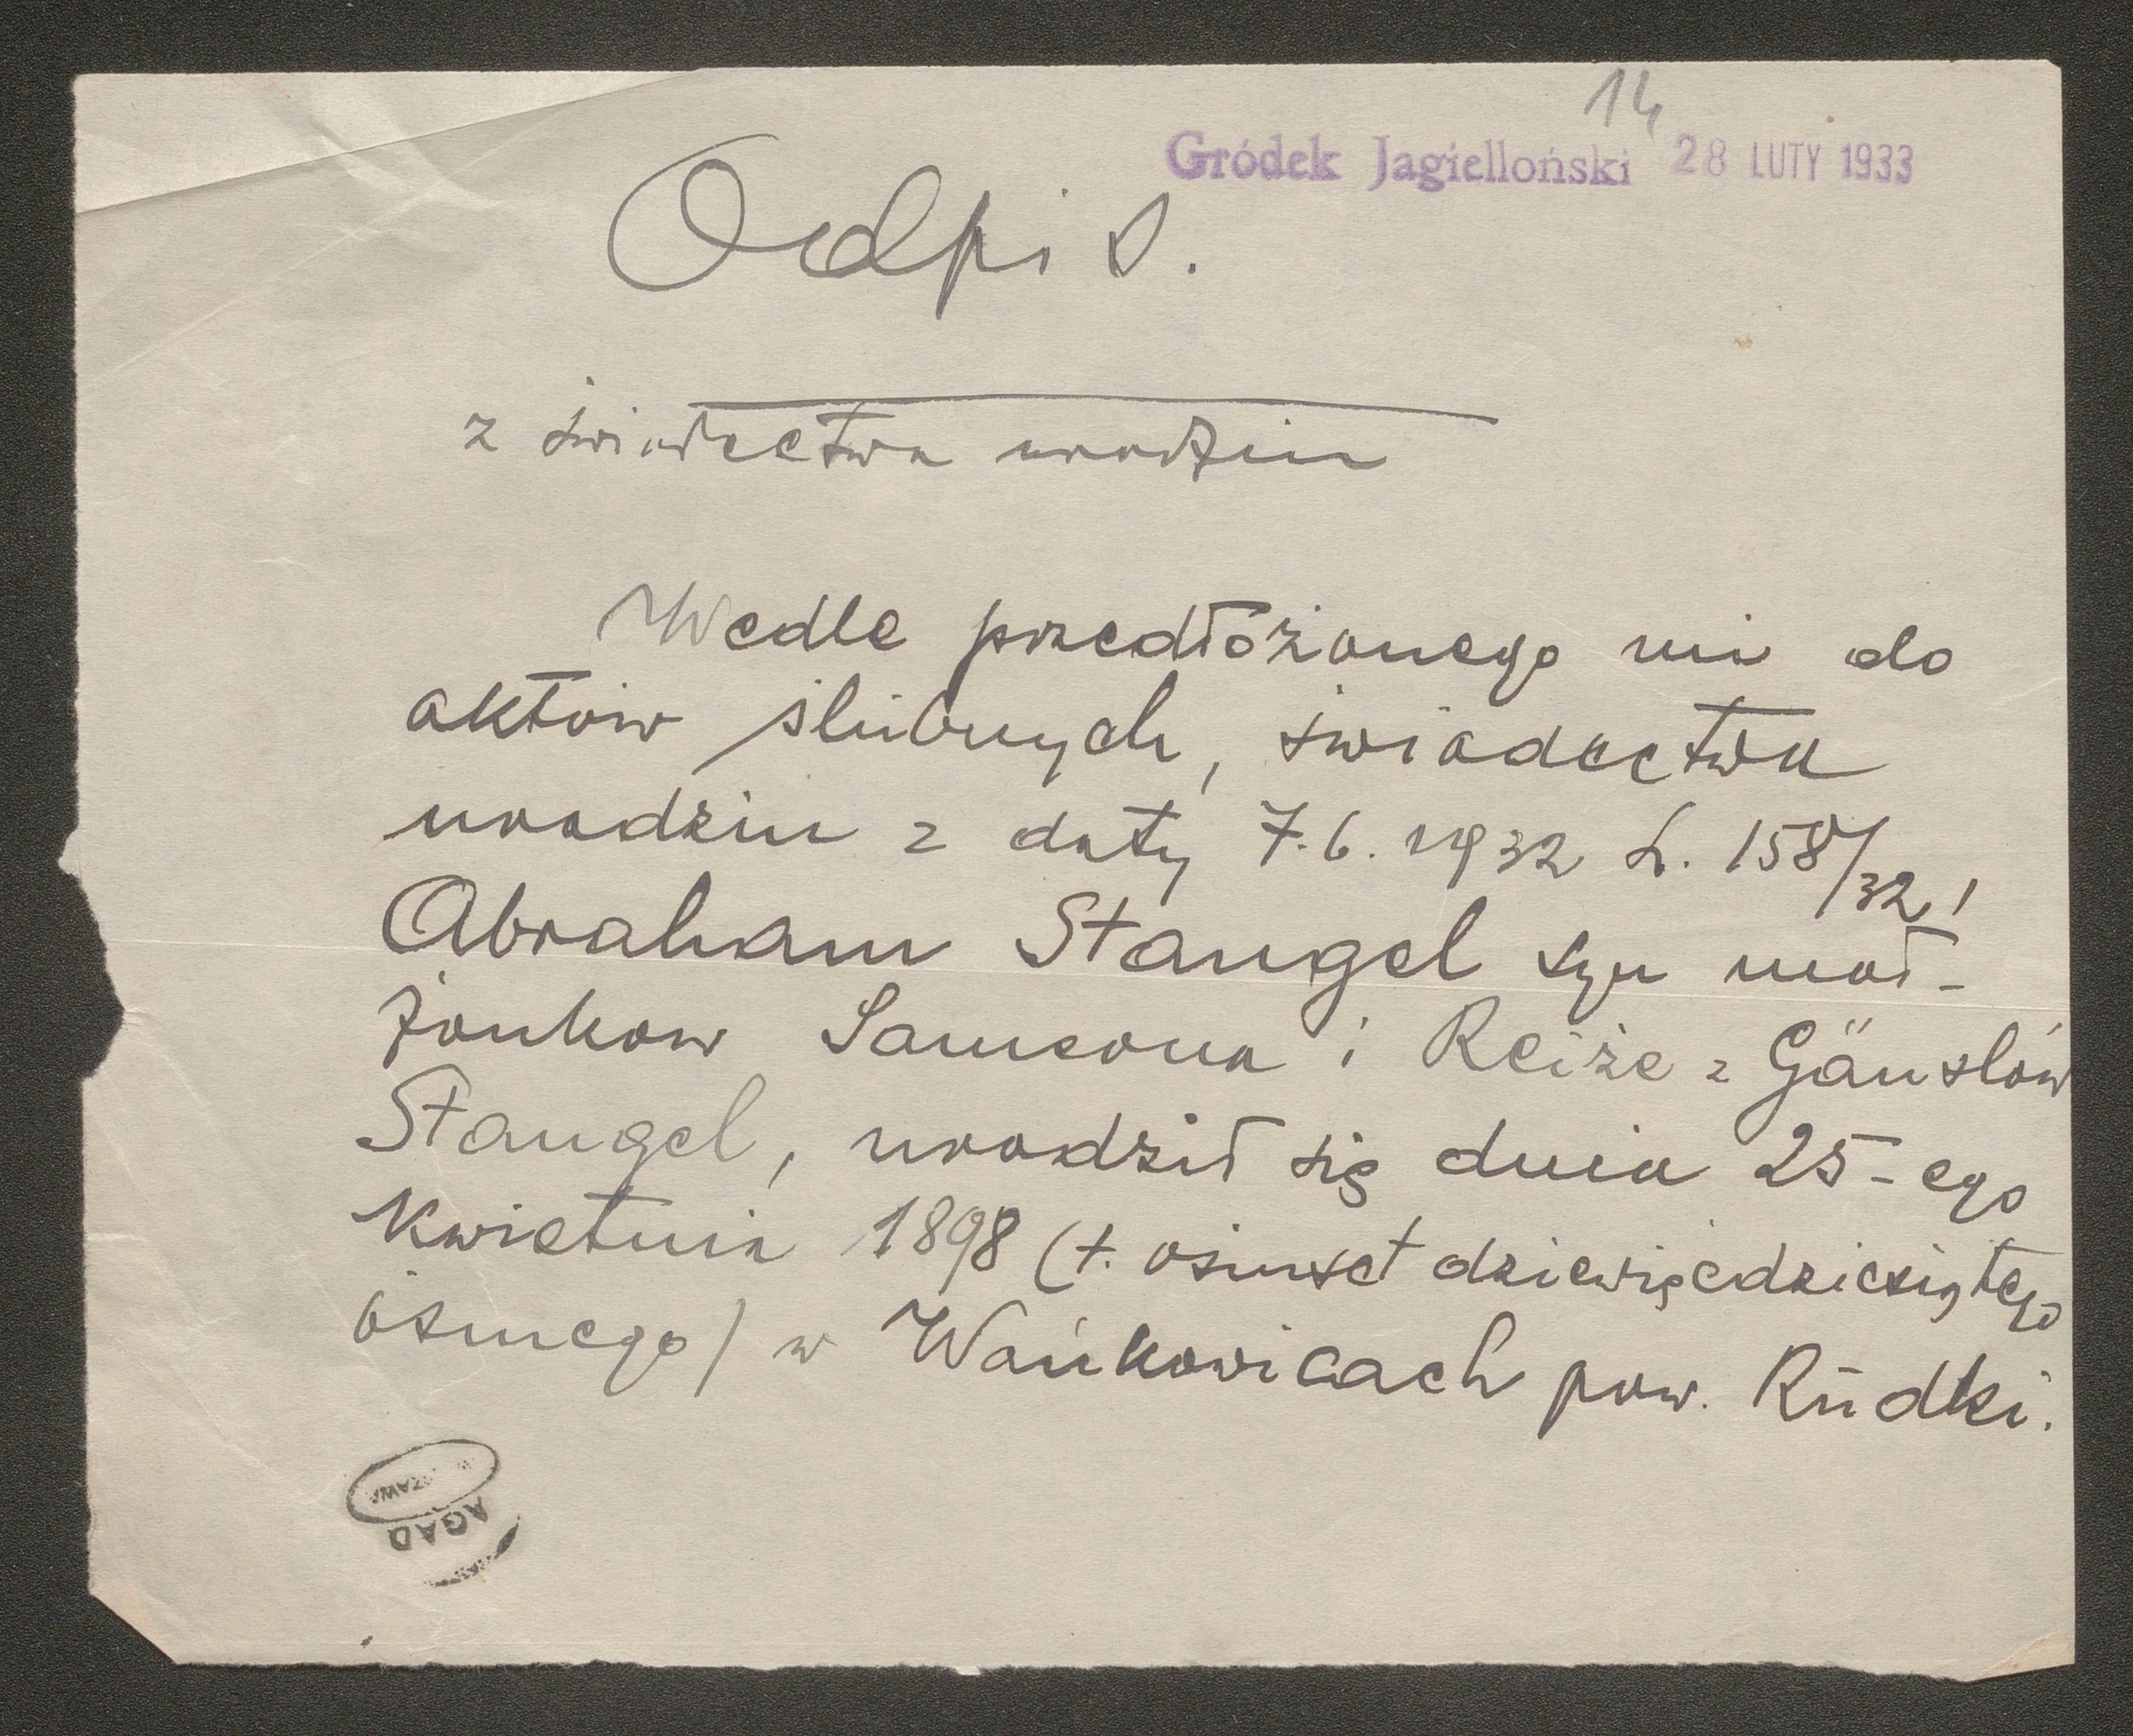 14
Gródek Jagielloński 28 LUTY 1933
Odpis.
z świadectwa urodzin
Wedle przedłożonego mi do
aktów ślubnych, świadectwa
urodzin z daty 7.6.1932 L. 158/32,
Abraham Stangel syn mał-
żonkow Samsona i Reize z Gänslów
Stangel, urodził się dnia 25-ego
Kwietnia 1898 (t. ośmset dziewięćdziesiątego
ósmego) w Wańkowicach pow. Rudki.
AGAD